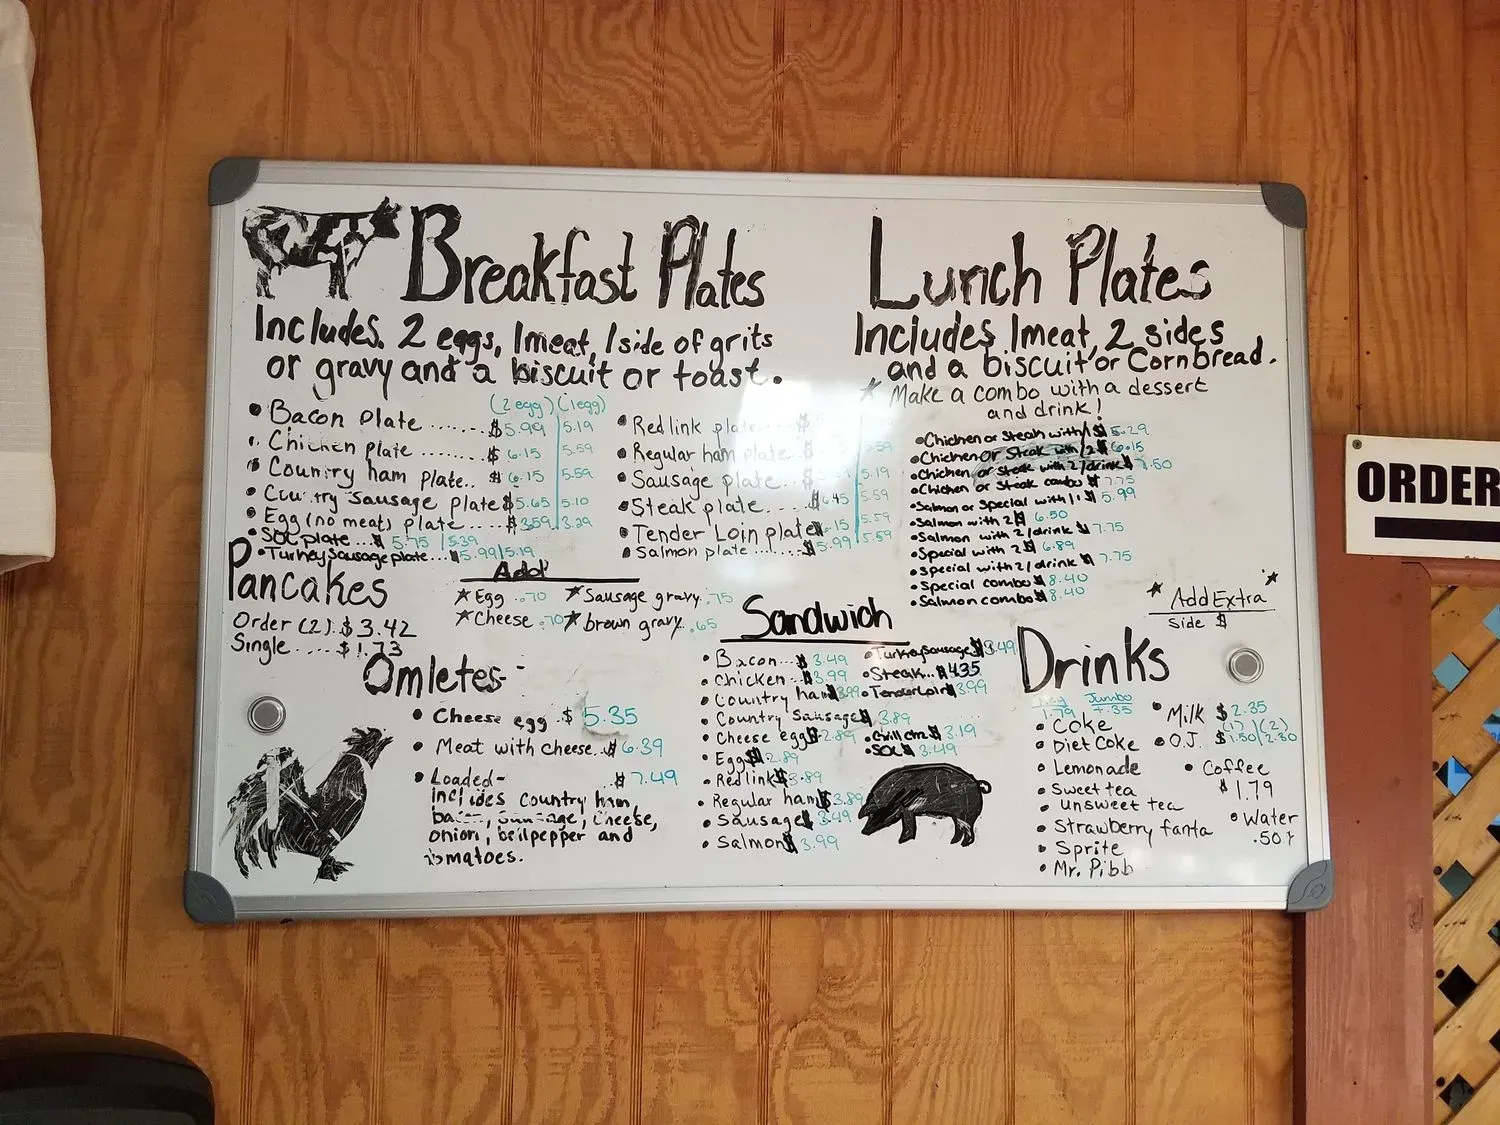 Breakfast Plates
Includes. 2 eggs, 1meat, 1side of grits
or gravy and a biscuit or toast.
(2 egg) (1egg)
• Bacon Plate ....... $5.99 5.19
• Chicken plate $ 6.15 5.59
• Country ham plate.. $ 6.15 5.59
• Country Sausage plate $5.65 5.10
• Egg (no meat) plate ..... $3.59 3.29
• SOC plate ... $ 5.75 / 5.39
• Turkey Sausage plate... $5.99/5.19
• Red link plate
• Regular ham plate
• Sausage plate 5.19
• Steak plate.... $6.45 5.59
• Tender Loin plate 6.15 5.59
• Salmon plate ....... $5.99 5.59
Add
★ Egg .70 ★ Sausage gravy .75
★ Cheese .70 ★ brown gravy .65
Pancakes
Order (2). $3.42
Single.... $1.73
Omletes-
• Cheese egg . $ 5.35
• Meat with cheese.. $ 6.39
• Loaded- $ 7.49
Includes country ham,
bacon, sausage, cheese,
onion, bellpepper and
tomatoes.
Sandwich
• Bacon... $ 3.49
• Chicken $3.99
• Country ham $3.99
• Country Sausage $ 3.89
• Cheese egg $2.89
• Egg $2.89
• Red link $3.89
• Regular ham $3.89
• Sausage $ 3.49
• Salmon $ 3.99
• Turkey Sausage $3.49
• Steak... $4.35
• TenderLoin $3.99
• Grill chz $ 3.19
• SOC $ 3.49
Lunch Plates
Includes 1meat, 2 sides
and a biscuit or Cornbread.
★ Make a combo with a dessert
and drink!
• Chicken or Steak with 1 $ 5.29
• Chicken or Steak with 2 $ 6.15
• Chicken or Steak with 2/drink $ 7.50
• Chicken or Steak combo $ 7.75
• Salmon or Special with 1 $ 5.99
• Salmon with 2 $ 6.50
• Salmon with 2/drink $ 7.75
• Special with 2 $ 6.89
• Special with 2/drink $ 7.75
• Special combo $ 8.40
• Salmon combo $ 8.40
★ Add Extra ★
Side $
Drinks
1.79 Jumbo
+.35
• Coke
• Diet Coke
• Lemonade
• Sweet tea
unsweet tea
• Strawberry fanta
• Sprite
• Mr. Pibb
• Milk $ 2.35
(1) (2)
• O.J. $1.50/2.30
• Coffee
$1.79
• Water
.50¢
ORDER